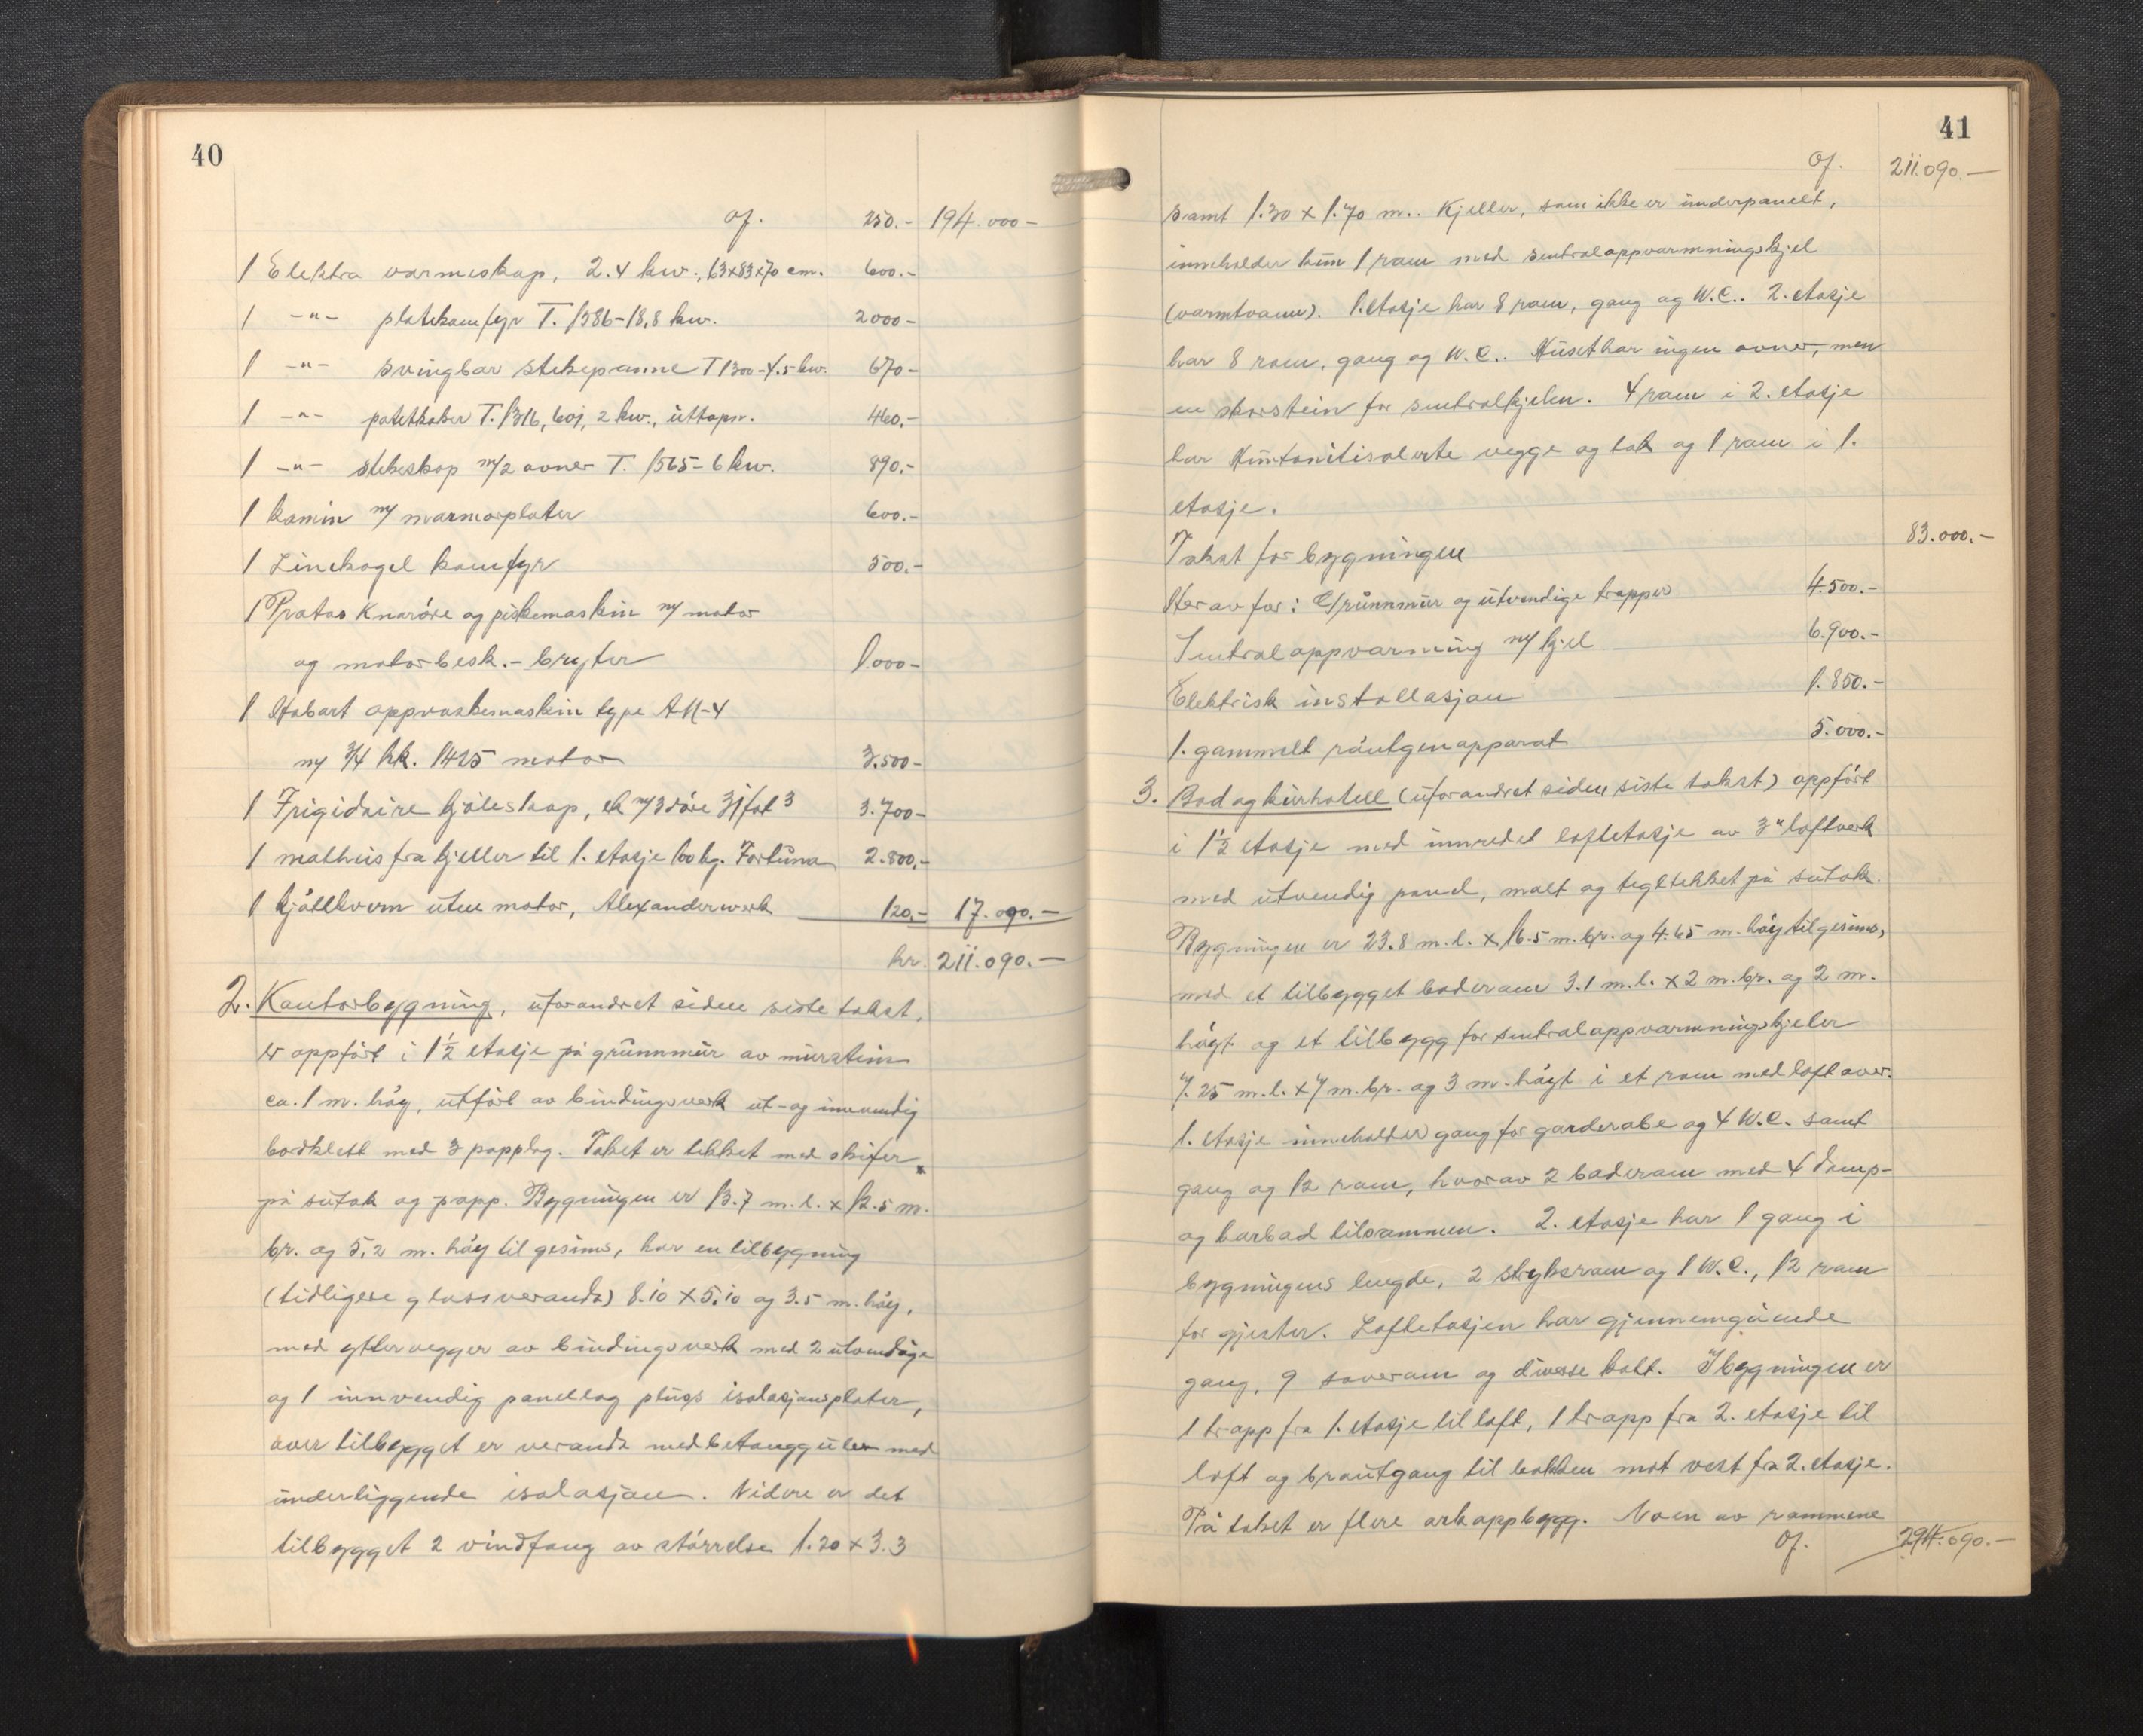 40
Of. 250.- 194.000-
1 Elektra varmeskap, 2.4 kw., 63x83x70 cm. 600.-
1 -"- platekomfyr T. 1586-18,8 kw. 2000-
1 -"- svingbar stekepanne T 1300-4.5 kw. 670-
1 -"- potetkoker T. 1316, 60j, 2 kw., uttapn. 460.-
1 -"- stekeskap m/2 ovner T. 1565-6 kw. 890.-
1 kamin m/ marmorplater 600.-
1 komfyr 500.-
1 Protos Knarøre og piskemaskin m/ motor
og motorbesk.-bryter 1.000-
1 Hobart oppvaskmaskin type AM-4
m/ 3/4 hk. 1425 motor 3.500-
1 Frigidaire kjøleskap, m/3 døre 31 fot 3 3.700-
1 matheis fra kjeller til 1. etasje 100 kg. Fortuna 2.800.-
1 kjøttkvern uten motor, Alexanderwerk 120.- 17.090.-
kr. 211.090.-
2. Kontorbygning, uforandret siden siste takst,
er oppført i 1½ etasje på grunnmur av murstein
ca. 1 m. høy, utført av bindingsverk ut- og innvendig
bordklett med 3 papplag. Taket er tekket med skifer
på sutak og papp. Bygningen er 13.7 m. l. x 12.5 m.
br. og 5,2 m. høy til gesims, har en tilbygning
(tidligere glassveranda) 8.10 x 5.10 og 3.5 m. høy,
med yttervegger av bindingsverk med 2 utvendige
og 1 innvendig panellag pluss isolasjonsplater,
over tilbygget er veranda med betonggulv med
underliggende isolasjon. Videre er det
tilbygget 2 vindfang av størrelse 1.20 x 3.3
41
Of. 211.090.-
samt 1.30 x 1.70 m.. Kjeller, som ikke er underpanelt,
inneholder kun 1 rom med sentraloppvarmningskjel
(varmtvann). 1. etasje har 8 rom, gang og W.C.. 2. etasje
har 8 rom, gang og W.C.. Huset har ingen ovner, men
en skorstein for sentralkjelen. 4 rom i 2. etasje
har Huntonitisolerte vegge og tak og 1 rom i 1.
etasje.
Takst for bygningen 83.000.-
Herav for: Grunnmur og utvendige trapper 4.500.-
Sentraloppvarming m/ kjel 6.900.-
Elektrisk installasjon 1.850.-
1. gammelt røntgenapparat 5.000.-
3. Bad og kurhotell (uforandret siden siste takst) oppført
i 1½ etasje med innredet loftetasje av 3" loftverk
med utvendig panel, malt og tegltekket på sutak.
Bygningen er 23.8 m. l. x 16.5 m. br. og 4.65 m. høy til gesims,
med et tilbygget baderom 3.1 m. l. x 2 m. br. og 2 m.
høyt og et tilbygg for sentraloppvarmningskjeler
7.25 m. l. x 7 m. br. og 3 m. høyt i et rom med loft over.
1. etasje inneholder gang for garderobe og 4 W.C. samt
gang og 12 rom, hvorav 2 baderom med 4 damp-
og karbad tilsammen. 2. etasje har 1 gang i
bygningens lengde, 2 strykerom og 1 W.C., 12 rom
for gjester. Loftetasjen har gjennemgående
gang, 9 soverom og diverse kott. I bygningen er
1 trapp fra 1. etasje til loft, 1 trapp fra 2. etasje til
loft og brautgang til bakken mot vest fra 2. etasje.
På taket er flere arkoppbygg. Noen av rommene
Of. 294.090.-